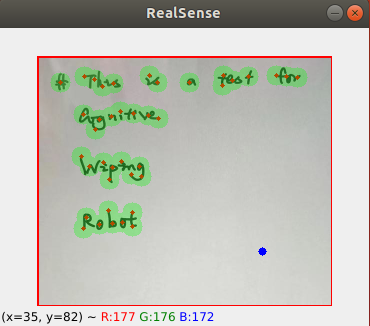 RealSense
# This is a test for
Cognitive
Wiping
Robot
(x=35, y=82) ~ R:177 G:176 B:172